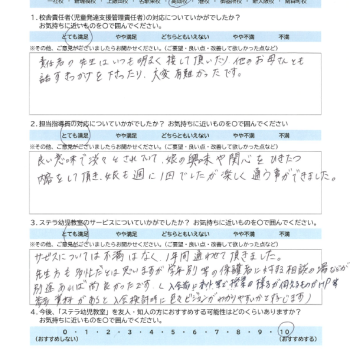 1. 校舎責任者(児童発達支援管理責任者)の対応についていかがでしたか?
お気持ちに近いものを○で囲んでください。
とても満足 やや満足 どちらともいえない やや不満 不満
※その他、ご意見がございましたらお聞かせください。(ご要望・良い点・改善して欲しかった点など)
責任者の先生はいつも明るく接して頂いたり、他のお母さんとも
話すきっかけを下さったり、大変有難かったです。
2. 担当指導員の対応についていかがでしたか? お気持ちに近いものを○で囲んでください
とても満足 やや満足 どちらともいえない やや不満 不満
※その他、ご意見がございましたらお聞かせください。(ご要望・良い点・改善して欲しかった点など)
良い意味で淡々とされており、娘の興味や関心をひきだつ
内容をして頂き、娘も週に1回でしたが楽しく通う事ができました。
3. ステラ幼児教室のサービスについていかがでしたか? お気持ちに近いものを○で囲んでください。
とても満足 やや満足 どちらともいえない やや不満 不満
※その他、ご意見がございましたらお聞かせください。(ご要望・良い点・改善して欲しかった点など)
サービスについては不満はなく、1年間通わせて頂きました。
先生方も多忙だとは思いますが学年別等の保護者に対する相談の場などが
別途あれば尚良かったです
4. 今後、「ステラ幼児教室」を友人・知人の方におすすめする可能性はどのくらいありますか?
お気持ちに近いものを○で囲んでください。
0・1・2・3・4・5・6・7・8・9・10
(おすすめしない) (おすすめする)